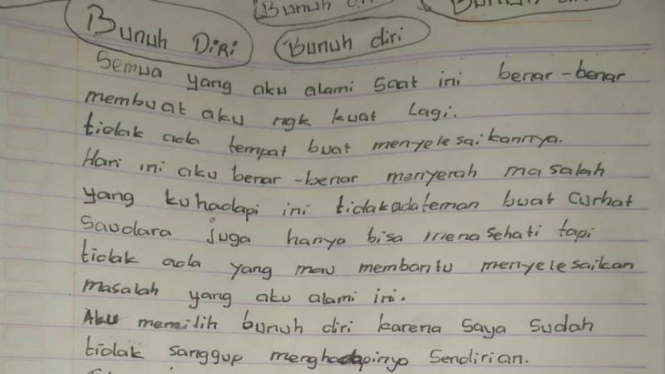 Bunuh
Bunuh DiRi Bunuh diri
Semua yang aku alami saat ini benar-benar
membuat aku ngk kuat lagi.
tidak ada tempat buat menyelesaikannya.
Hari ini aku benar-benar menyerah masalah
yang kuhadapi ini tidak ada teman buat curhat
Saudara juga hanya bisa menasehati tapi
tidak ada yang mau membantu menyelesaikan
masalah yang aku alami ini.
Aku memilih bunuh diri karena saya sudah
tidak sanggup menghadapinya sendirian.